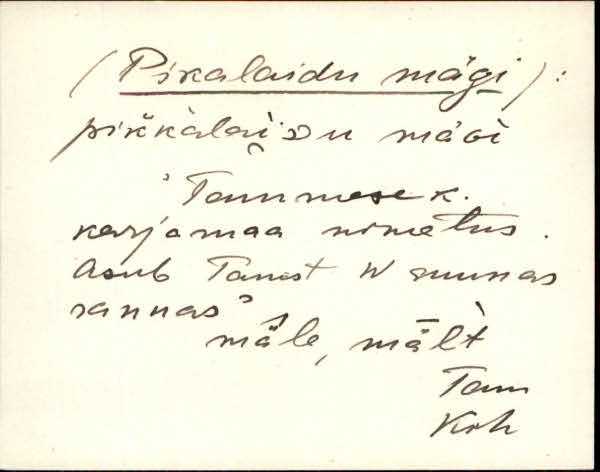 (Pikalaidu mägi):
pikkàlai͔ᴅu mäGì
"Tammese k.
karjamaa nimetus.
Asub Tamst W suunas
rannas"
mä̀le, mā̈l̀t
Tam
Krh